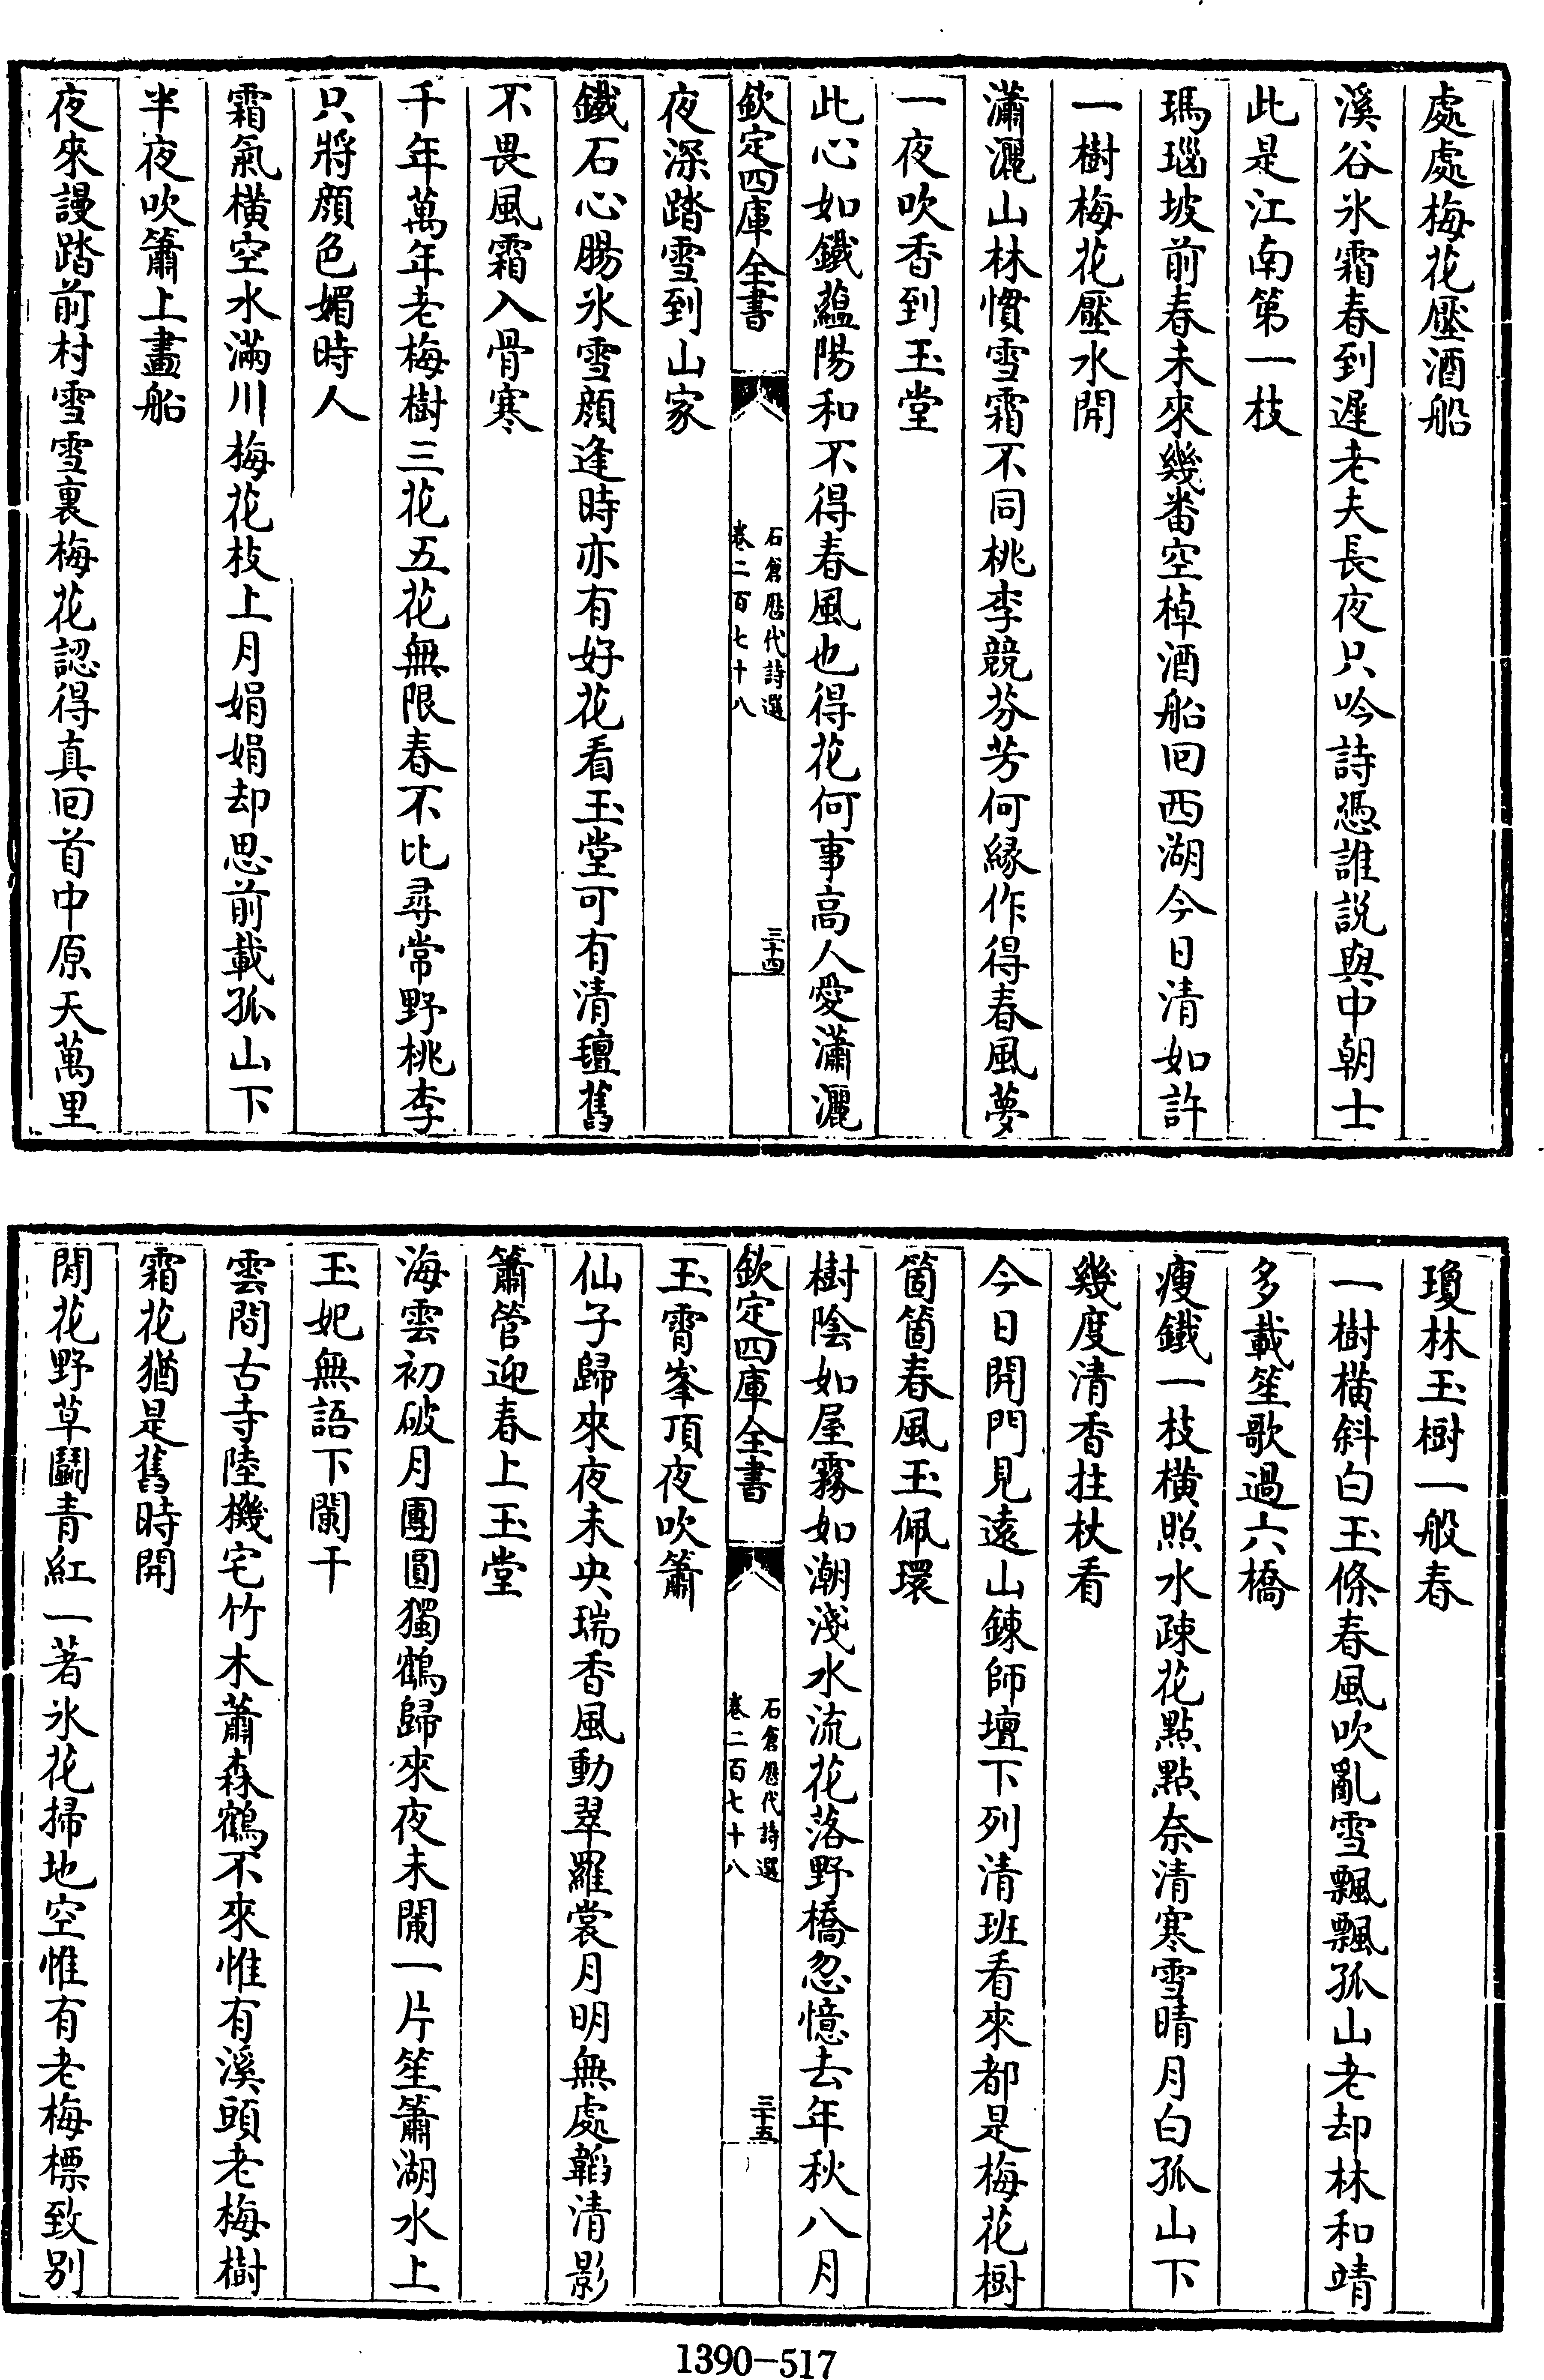 處處梅花壓酒船
溪谷氷霜春到遲老夫長夜只吟詩憑誰說與中朝士
此是江南第一枝
瑪瑙坡前春未來幾番空棹酒船回西湖今日清如許
一樹梅花壓水開
瀟灑山林慣雪霜不同桃李競芬芳何縁作得春風夢
一夜吹香到玉堂
此心如鐵蘊陽和不得春風也得花何事高人愛瀟灑
欽定四庫全書
石倉厯代詩選
卷二百七十八
三十四
夜深踏雪到山家
鐵石心腸氷雪顔逢時亦有好花看玉堂可有清氊舊
不畏風霜入骨寒
千年萬年老梅樹三花五花無限春不比尋常野桃李
只將顔色媚時人
霜氣橫空水滿川梅花枝上月娟娟却思前載孤山下
半夜吹簫上畫船
夜來謾踏前村雪雪裏梅花認得真回首中原天萬里
瓊林玉樹一般春
一樹橫斜白玉條春風吹亂雪飄飄孤山老却林和靖
多載笙歌過六橋
瘦鐵一枝橫照水疎花點點奈清寒雪晴月白孤山下
幾度清香拄杖看
今日開門見遠山鍊師壇下列清班看來都是梅花樹
箇箇春風玉佩環
樹陰如屋霧如潮淺水流花落野橋忽憶去年秋八月
欽定四庫全書
石倉厯代詩選
卷二百七十八
三十五
玉霄峯頂夜吹簫
仙子歸來夜未央瑞香風動翠羅裳月明無處韜清影
簫管迎春上玉堂
海雲初破月團圓獨鶴歸來夜未闌一片笙簫湖水上
玉妃無語下闌干
雲間古寺陸機宅竹木蕭森鶴不來惟有溪頭老梅樹
霜花猶是舊時開
閒花野草鬭青紅一著氷花掃地空惟有老梅標致别
1390-517